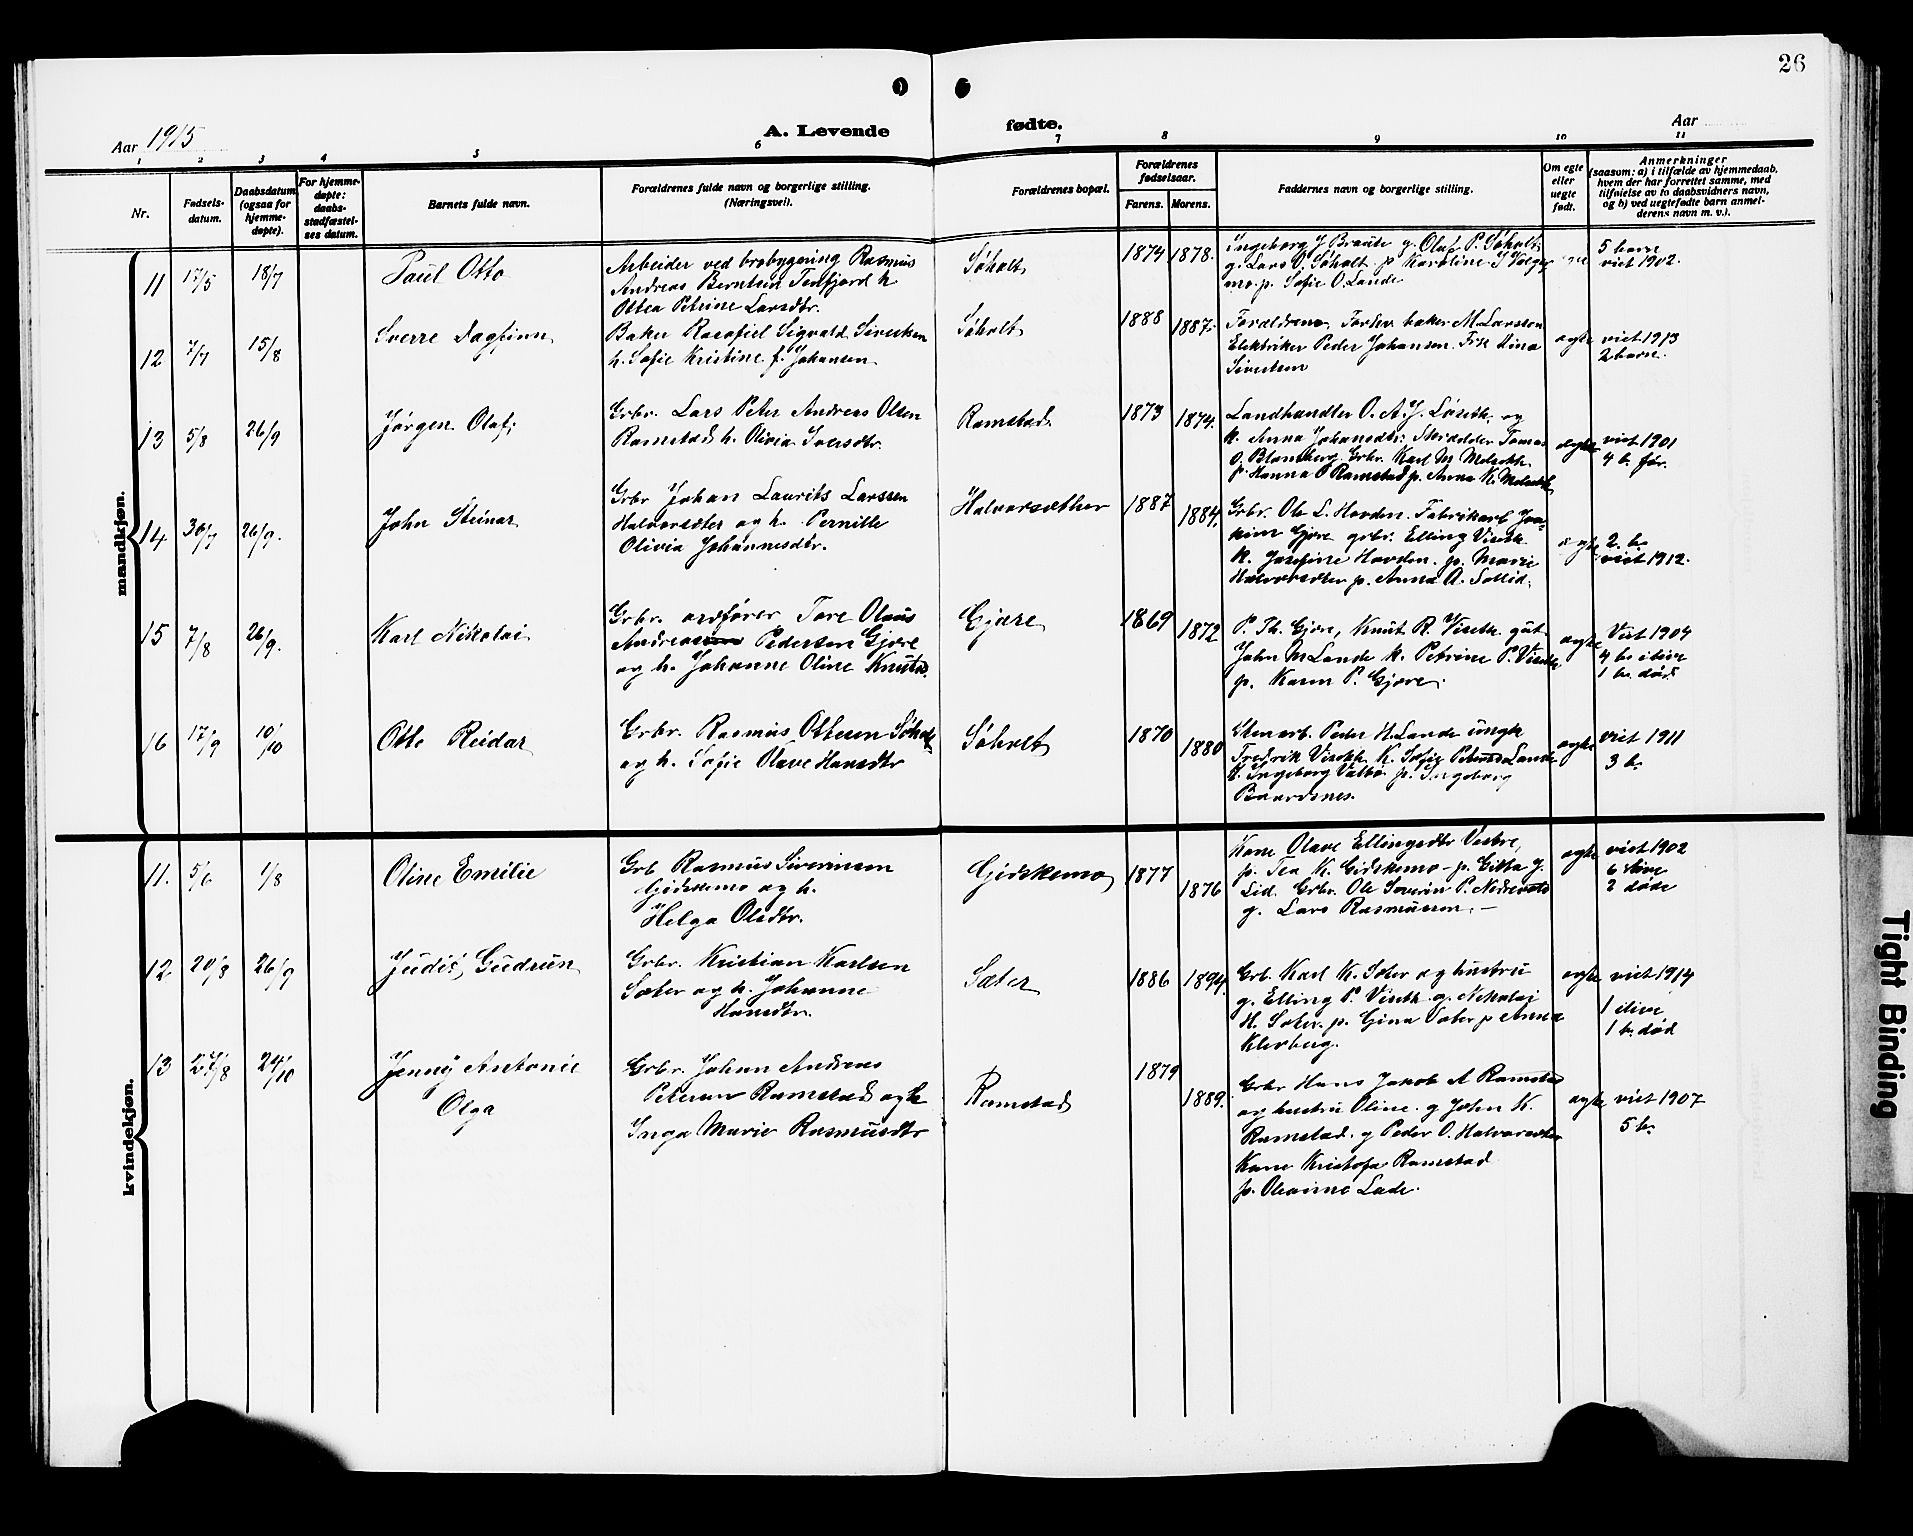 26
Aar 1915
A. Levende
fødte.
Aar
1 2 3 4 5 6 7 8 9 10 11
Nr.
Fødsels-
datum.
Daabsdatum
(ogsaa for
hjemme-
døpte).
For hjemme-
døpte:
daabs-
stadfæstel-
ses datum.
Barnets fulde navn.
Forældrenes fulde navn og borgerlige stilling.
(Næringsvei).
Forældrenes bopæl.
Forældrenes
fødselsaar.
Farens. Morens.
Faddernes navn og borgerlige stilling.
Om egte
eller
uegte
født.
Anmerkninger
(saasom: a) i tilfælde av hjemmedaab,
hvem der har forrettet samme, med
tilføielse av to daabsvidners navn,
og b) ved uegtefødte barn anmel-
derens navn m. v.).
mandkjøn.
11 17/5 18/7 Paul Otto
Arbeider ved brobygning Rasmus
Andreas Berntsen Tenfjord h
Ottea Petrine Larsdtr.
Søholt
1874 1878.
Ingeborg J Braute g. Olaf P. Søholt
g. Lars O. Søholt p Karoline
mo. p. Sofie O. Lande
5 barn
viet 1902.
12 7/7 15/8 Sverre Dagfinn
Baker Sigvald Sivertsen
h. Sofie Kristine f. Johansen
Søholt
1888 1887.
Forældrene. Forhv. baker M Larssen
Elektriker Peder Johansen. Frk Lina
Sivertsen
egte
viet 1913
2 barn.
13 5/8 26/9 Jørgen Olaf
Grbr. Lars Peter Andreas Olsen
Ramstad h. Olivia Iversdtr.
Ramstad
1873 1874.
Landhandler O. A. J. Løseth og
k. Anna Johansdtr. Skrædder Tomas
O. Blomberg. Grbr. Karl M Melseth
p Hanna P Ramstad p. Anna K. Melseth
egte
viet 1901
4 b. før.
14 30/7 26/9. John Steinar
Grbr Johan Laurits Larssen
Halvorsæter og h. Pernille
Olivia Johannesdtr.
Halvorsæther
1887 1884.
Grbr. Ole L. Hovden. Fabrikarb Joa-
kim Gjøre grbr. Elling Viseth
K. Josefine Hovden. p. Marie
Halvorsæter p. Anna A. Sollid.
egte
2. b.
viet 1912.
15 7/8 26/9. Karl Nikolai
Grbr. ordfører Tore Olaus
Andreas Pedersen Gjøre
og h. Johanne Oline Knutsd.
Gjøre
1869 1872
P. Th. Gjøre, Knut R. Viseth gut
John M Lande k. Petrine P. Viseth
p. Karen P. Gjøre.
egte
Viet 1904
4 b. ilive
1 b. død
16 17/9 10/10 Otto Reidar
Grbr. Rasmus Ottesen Søholt
og h. Sofie Olave Hansdtr
Søholt
1870 1880
Stenarb. Peder H. Lande ungk
Fredrik Viseth K. Sofie Lande
p. Ingeborg Valbø p. Ingeborg
Baardsnes.
egte
viet 1911
3 b.
kvindekjøn.
11. 5/6 1/8 Oline Emilie
Grb Rasmus Severinsen
Gidskemo og h.
Helga Olsdtr.
Gidskemo
1877 1876
Kone Olave Ellingsdtr Vestre,
p. Tea K. Gidskemo - p. Gitta J.
Lid. Grbr. Ole Severin P.
g. Lars Rasmussen. —
egte
viet 1902
6 ilive
2 døde
12 20/8 26/9 Judit Gudrun
Grbr. Kristian Karlsen
Sæter og h. Johanne
Hansdtr.
Sæter
1886 1894.
Grb. Karl K. Sæter og hustru
g. Elling P. Viseth g. Nikolai
H. Sæter. p. Gina Sæter p Anna
Klovberg.
egte
viet 1914
1 ilive
1 b. død
13 27/8 24/10 Jenny Antonie
Olga
Grbr. Johan Andreas
Petersen Ramstad og h
Inga Marie Rasmusdtr
Ramstad
1879 1889.
Grbr Hans Jakob A Ramstad
og hustru Oline. g John K.
Ramstad. g Peder O. Halvorsæter
Kone Kristofa Ramstad
p. Lade.
egte
viet 1907
5 b.
Tight Binding